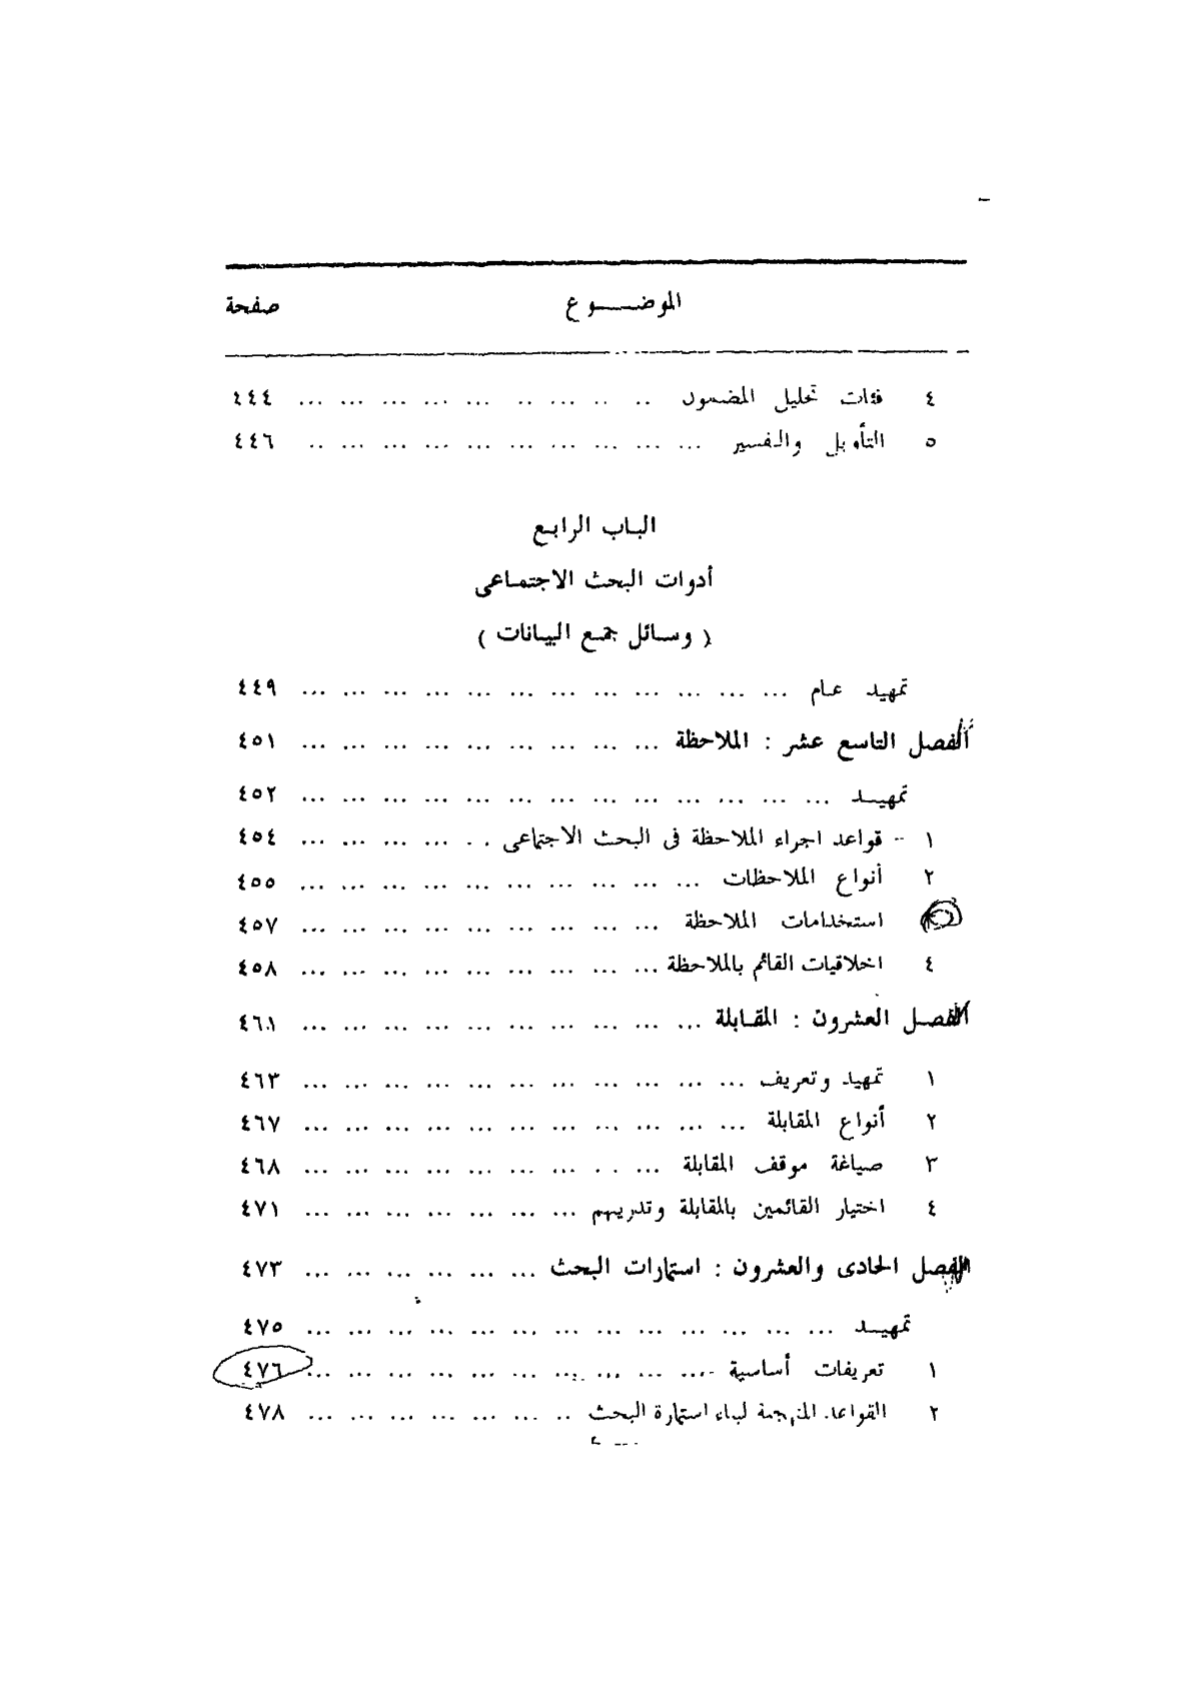 الموضـــوع صفحة
٤ فئات تحليل المضمون ... ٤٤٤
٥ التأويل والتفسير ... ٤٤٦
الباب الرابع
أدوات البحث الاجتماعى
( وسائل جمع البيانات )
تمهيد عام ... ٤٤٩
الفصل التاسع عشر : الملاحظة ... ٤٥١
تمهيـد ... ٤٥٢
١ - قواعد اجراء الملاحظة فى البحث الاجتماعى ... ٤٥٤
٢ أنواع الملاحظات ... ٤٥٥
استخدامات الملاحظة ... ٤٥٧
٤ اخلاقيات القائم بالملاحظة ... ٤٥٨
الفصل العشرون : المقابلة ... ٤٦١
١ تمهيد وتعريف ... ٤٦٣
٢ أنواع المقابلة ... ٤٦٧
٣ صياغة موقف المقابلة ... ٤٦٨
٤ اختيار القائمين بالمقابلة وتدريبهم ... ٤٧١
الفصل الحادى والعشرون : استمارات البحث ... ٤٧٣
تمهيـد ... ٤٧٥
١ تعريفات أساسية ... ٤٧٦
٢ القواعد المنهجية لبناء استمارة البحث ... ٤٧٨